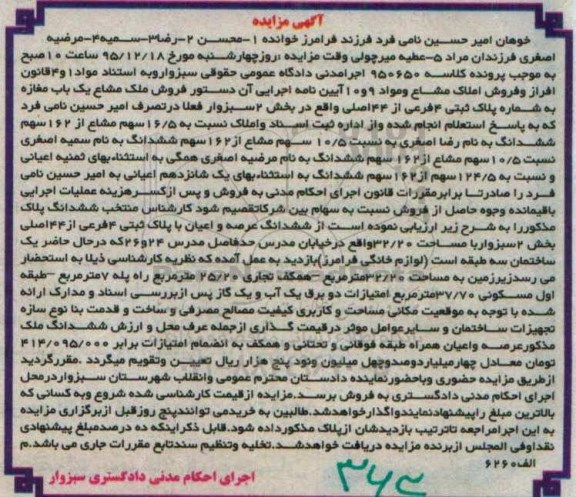 آگهی مزایده
خوهان امیر حسین نامی فرد فرزند فرامرز خوانده ۱-محسن ۲-رضا۳-سمیه۴-مرضیه
اصغری فرزندان مراد ۵-عطیه میرچولی وقت مزایده :روزچهارشنبه مورخ ۹۵/۱۲/۱۸ ساعت ۱۰صبح
به موجب پرونده کلاسه ۹۵۰۶۵۰ اجرامدنی دادگاه عمومی حقوقی سبزواروبه استناد مواد۱و۴قانون
افراز وفروش املاک مشاع ومواد ۹و۱۰آیین نامه اجرایی آن دستور فروش ملک مشاع یک باب مغازه
به شماره پلاک ثبتی ۴فرعی از ۴۴اصلی واقع در بخش ۲سبزوار فعلا درتصرف امیر حسین نامی فرد
که به پاسخ استعلام انجام شده واز اداره ثبت اسناد واملاک نسبت به ۱۶/۵سهم مشاع از ۱۶۲سهم
ششدانگ به نام رضا اصغری به نسبت ۱۰/۵ سهم مشاع از۱۶۲سهم ششدانگ به نام سمیه اصغری
نسبت ۱۰/۵سهم مشاع از۱۶۲ سهم ششدانگ به نام مرضیه اصغری همگی به استثناءبهای ثمنیه اعیانی
و نسبت به ۱۲۴/۵سهم از۱۶۲سهم ششدانگ به استثناءبهای یک شانزدهم اعیانی به امیر حسین نامی
فرد را صادرتا برابرمقررات قانون اجرای احکام مدنی به فروش و پس ازکسرهزینه عملیات اجرایی
باقیمانده وجوه حاصل از فروش نسبت به سهام بین شرکاتقصیم شود کارشناس منتخب ششدانگ پلاک
مذکوررا به شرح زیر ارزیابی نموده است از ششدانگ عرصه و اعیان با پلاک ثبتی ۴فرعی از۴۴اصلی
بخش ۲سبزواربا مساحت ۳۲/۲۰واقع درخیابان مدرس حدفاصل مدرس ۲۴و۲۶که درحال حاضر یک
ساختمان سه طبقه است (لوازم خانگی فرامرز)بازدید به عمل آمده که نظریه کارشناسی ذیلا به استحضار
می رسدزیرزمین به مساحت ۳۲/۲۰مترمربع – همکف تجاری ۲۵/۲۰ مترمربع راه پله ۷مترمربع –طبقه
اول مسکونی ۳۷/۷۰مترمربع امتیازات دو برق یک آب و یک گاز پس ازبررسی اسناد و مدارک ارائه
شده با توجه به موقعیت مکانی مساحت و کاربری کیفیت مصالح مصرفی و ساخت و قدمت بنا نوع سازه
تجهیزات ساختمان و سایرعوامل موثر درقیمت گذاری ازجمله عرف محل و ارزش ششدانگ ملک
مذکورعرصه واعیان همراه طبقه فوقانی و تحتانی و همکف به انضمام امتیازات برابر ۴۱۴/۰۹۵/۰۰۰
تومان معادل چهارمیلیاردوصدوچهل میلیون ونود پنج هزار ریال تعیین وتقویم میگردد .مقررگردید
ازطریق مزایده حضوری وباحضورنماینده دادستان محترم عمومی وانقلاب شهرستان سبزواردرمحل
اجرای احکام مدنی دادگستری به فروش برسد.مزایده ازقیمت کارشناسی شده شروع وبه کسانی که
بالاترین مبلغ راپیشنهادنمایندواگذارخواهدشد.طالبین به خریدمی توانندپنج روزقبل ازبرگزاری مزایده
به این اجرامراجعه تاترتیب بازدیدشان ازپلاک مذکورداده شود.قابل ذکراینکه ده درصدمبلغ پیشنهادی
نقداوفی المجلس ازبرنده مزایده دریافت خواهدشد.تخلیه وتنظیم سندتابع مقررات جاری می باشد.م
الف۶۲۶۰
اجرای احکام مدنی دادگستری سبزوار